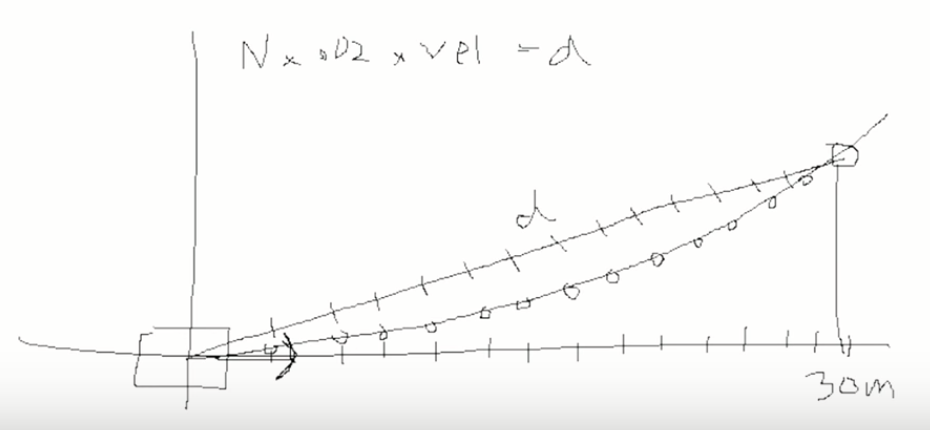 N x .02 x vel = d
d
30m